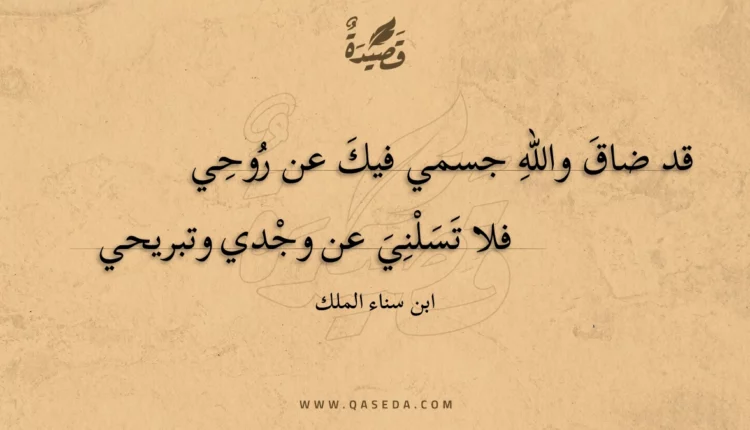 قَصِيدَةٌ
قد ضاقَ واللهِ جسمي فيكَ عن رُوحِي
فلا تَسَلْنِيَ عن وجْدي وتبريحي
ابن سناء الملك
WWW.QASEDA.COM